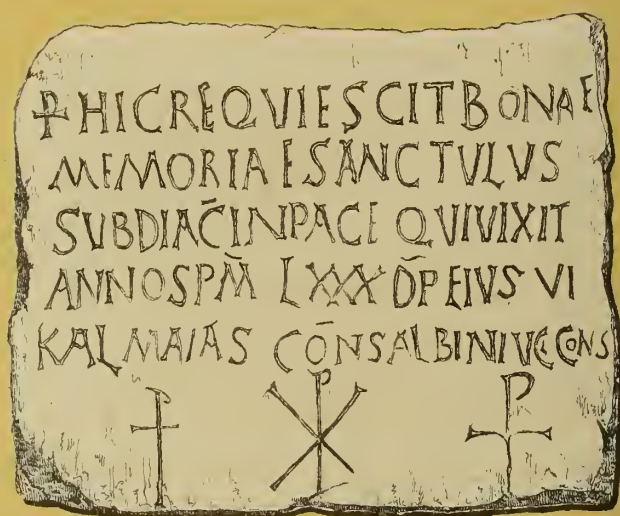 ⳨ HIC REQVIESCIT BONAE
MEMORIAE SANCTVLVS
SVBDIAC̄ INPACE QVIVIXIT
ANNOS PM̄ LXXX D̄P EIVS VI
KAL MAIAS CŌNS ALBINI VCC CONS